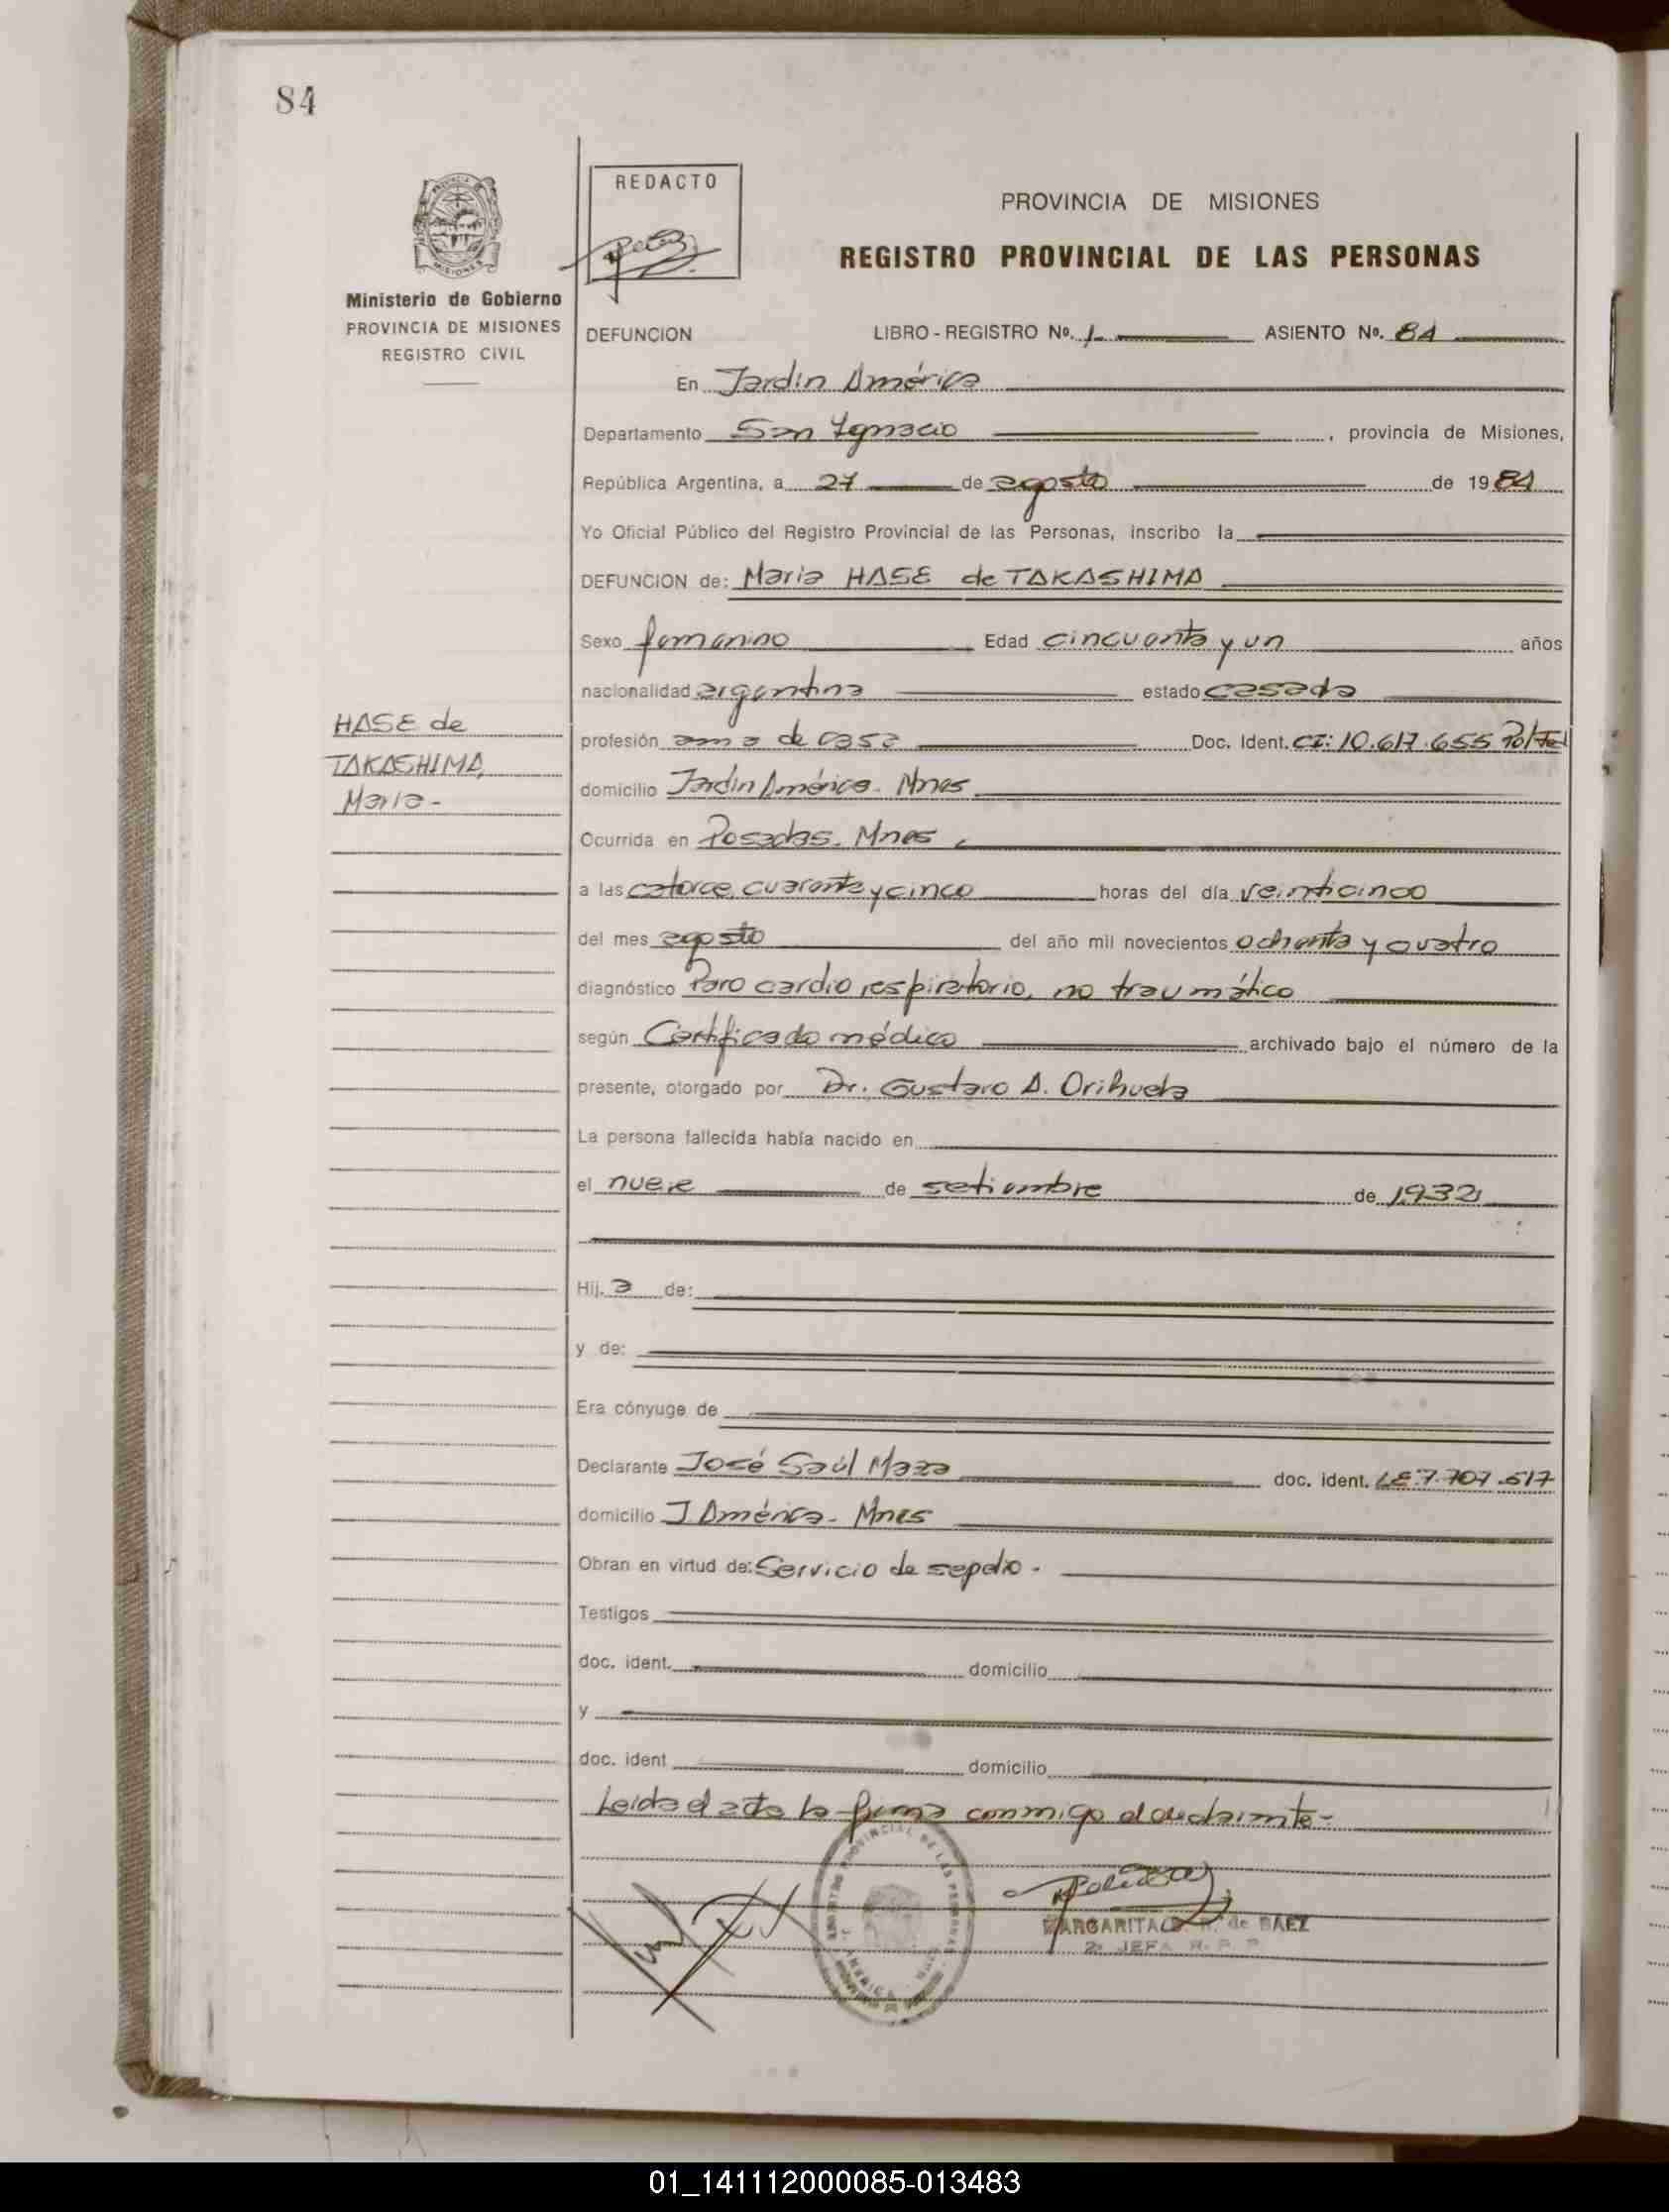 84
REDACTO
PROVINCIA DE MISIONES
REGISTRO PROVINCIAL DE LAS PERSONAS
Ministerio de Gobierno
PROVINCIA DE MISIONES
REGISTRO CIVIL
DEFUNCION LIBRO - REGISTRO Nº. 1 ASIENTO Nº. 84
En Jardin América
Departamento San Ignacio, provincia de Misiones,
República Argentina, a 27 de agosto de 1984
Yo Oficial Público del Registro Provincial de las Personas, inscribo la
DEFUNCION de: Maria HASE de TAKASHIMA
Sexo femenino Edad cincuenta y un años
nacionalidad argentina estado casada
HASE de
TAKASHIMA,
Maria-
profesión ama de casa Doc. Ident. CI: 10.617.655 Pol Fed
domicilio Jardin América - Mnes
Ocurrida en Posadas. Mnes.
a las catorce, cuarenta y cinco horas del día veinticinco
del mes agosto del año mil novecientos ochenta y cuatro
diagnóstico Paro cardio respiratorio, no traumático
según Certificado médico archivado bajo el número de la
presente, otorgado por Dr. Gustavo A. Orihuela
La persona fallecida había nacido en
el nueve de setiembre de 1932
Hij a de:
y de:
Era cónyuge de
Declarante José Saúl Maza doc. ident. LE 7.707.517
domicilio J América - Mnes
Obran en virtud de: Servicio de sepelio -
Testigos
doc. ident. domicilio
y
doc. ident domicilio
Leida el acta la firma conmigo el declarante-
MARGARITA de BAEZ
2º JEFA R. P. P.
01_141112000085-013483